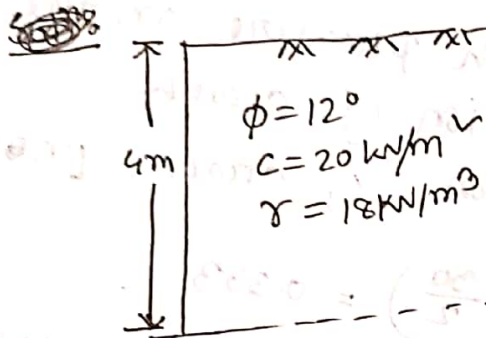 4m
φ=12°
C=20 kN/m²
γ=18kN/m³